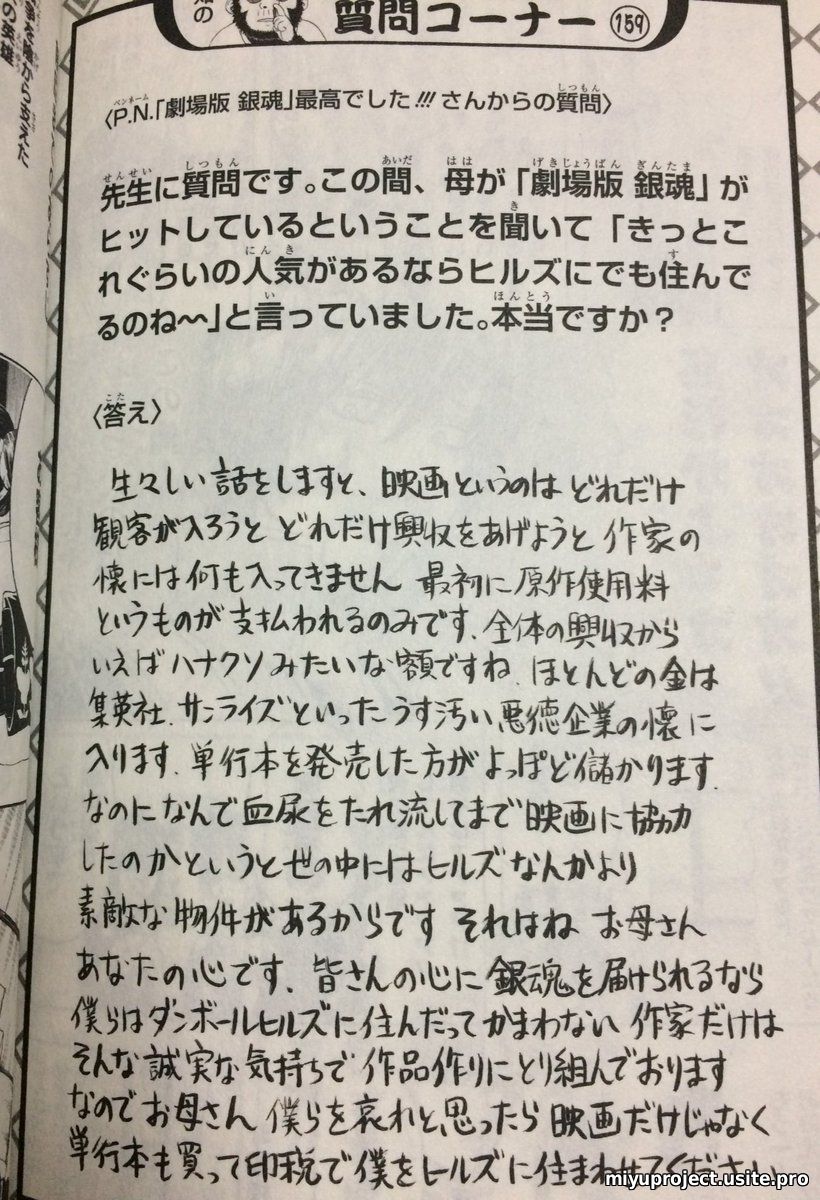 質問コーナー 159
〈P.N.「劇場版 銀魂」最高でした!!!さんからの質問〉
先生に質問です。この間、母が「劇場版 銀魂」が
ヒットしているということを聞いて「きっとこ
れぐらいの人気があるならヒルズにでも住んで
るのね〜」と言っていました。本当ですか？
〈答え〉
生々しい話をしますと、映画というのは どれだけ
観客が入ろうと どれだけ興収をあげようと 作家の
懐には何も入ってきません 最初に原作使用料
というものが支払われるのみです、全体の興収から
いえばハナクソみたいな額ですね、ほとんどの金は
集英社、サンライズといったうす汚い悪徳企業の懐に
入ります、単行本を発売した方がよっぽど儲かります、
なのになんで血尿をたれ流してまで映画に協力
したのかというと世の中にはヒルズなんかより
素敵な物件があるからです それはね お母さん
あなたの心です、皆さんの心に銀魂を届けられるなら
僕らはダンボールヒルズに住んだってかまわない 作家だけは
そんな誠実な気持ちで 作品作りにとり組んでおります
なのでお母さん 僕らを哀れと思ったら 映画だけじゃなく
単行本も買って印税で僕をヒルズに住まわせてください
miyuproject.usite.pro